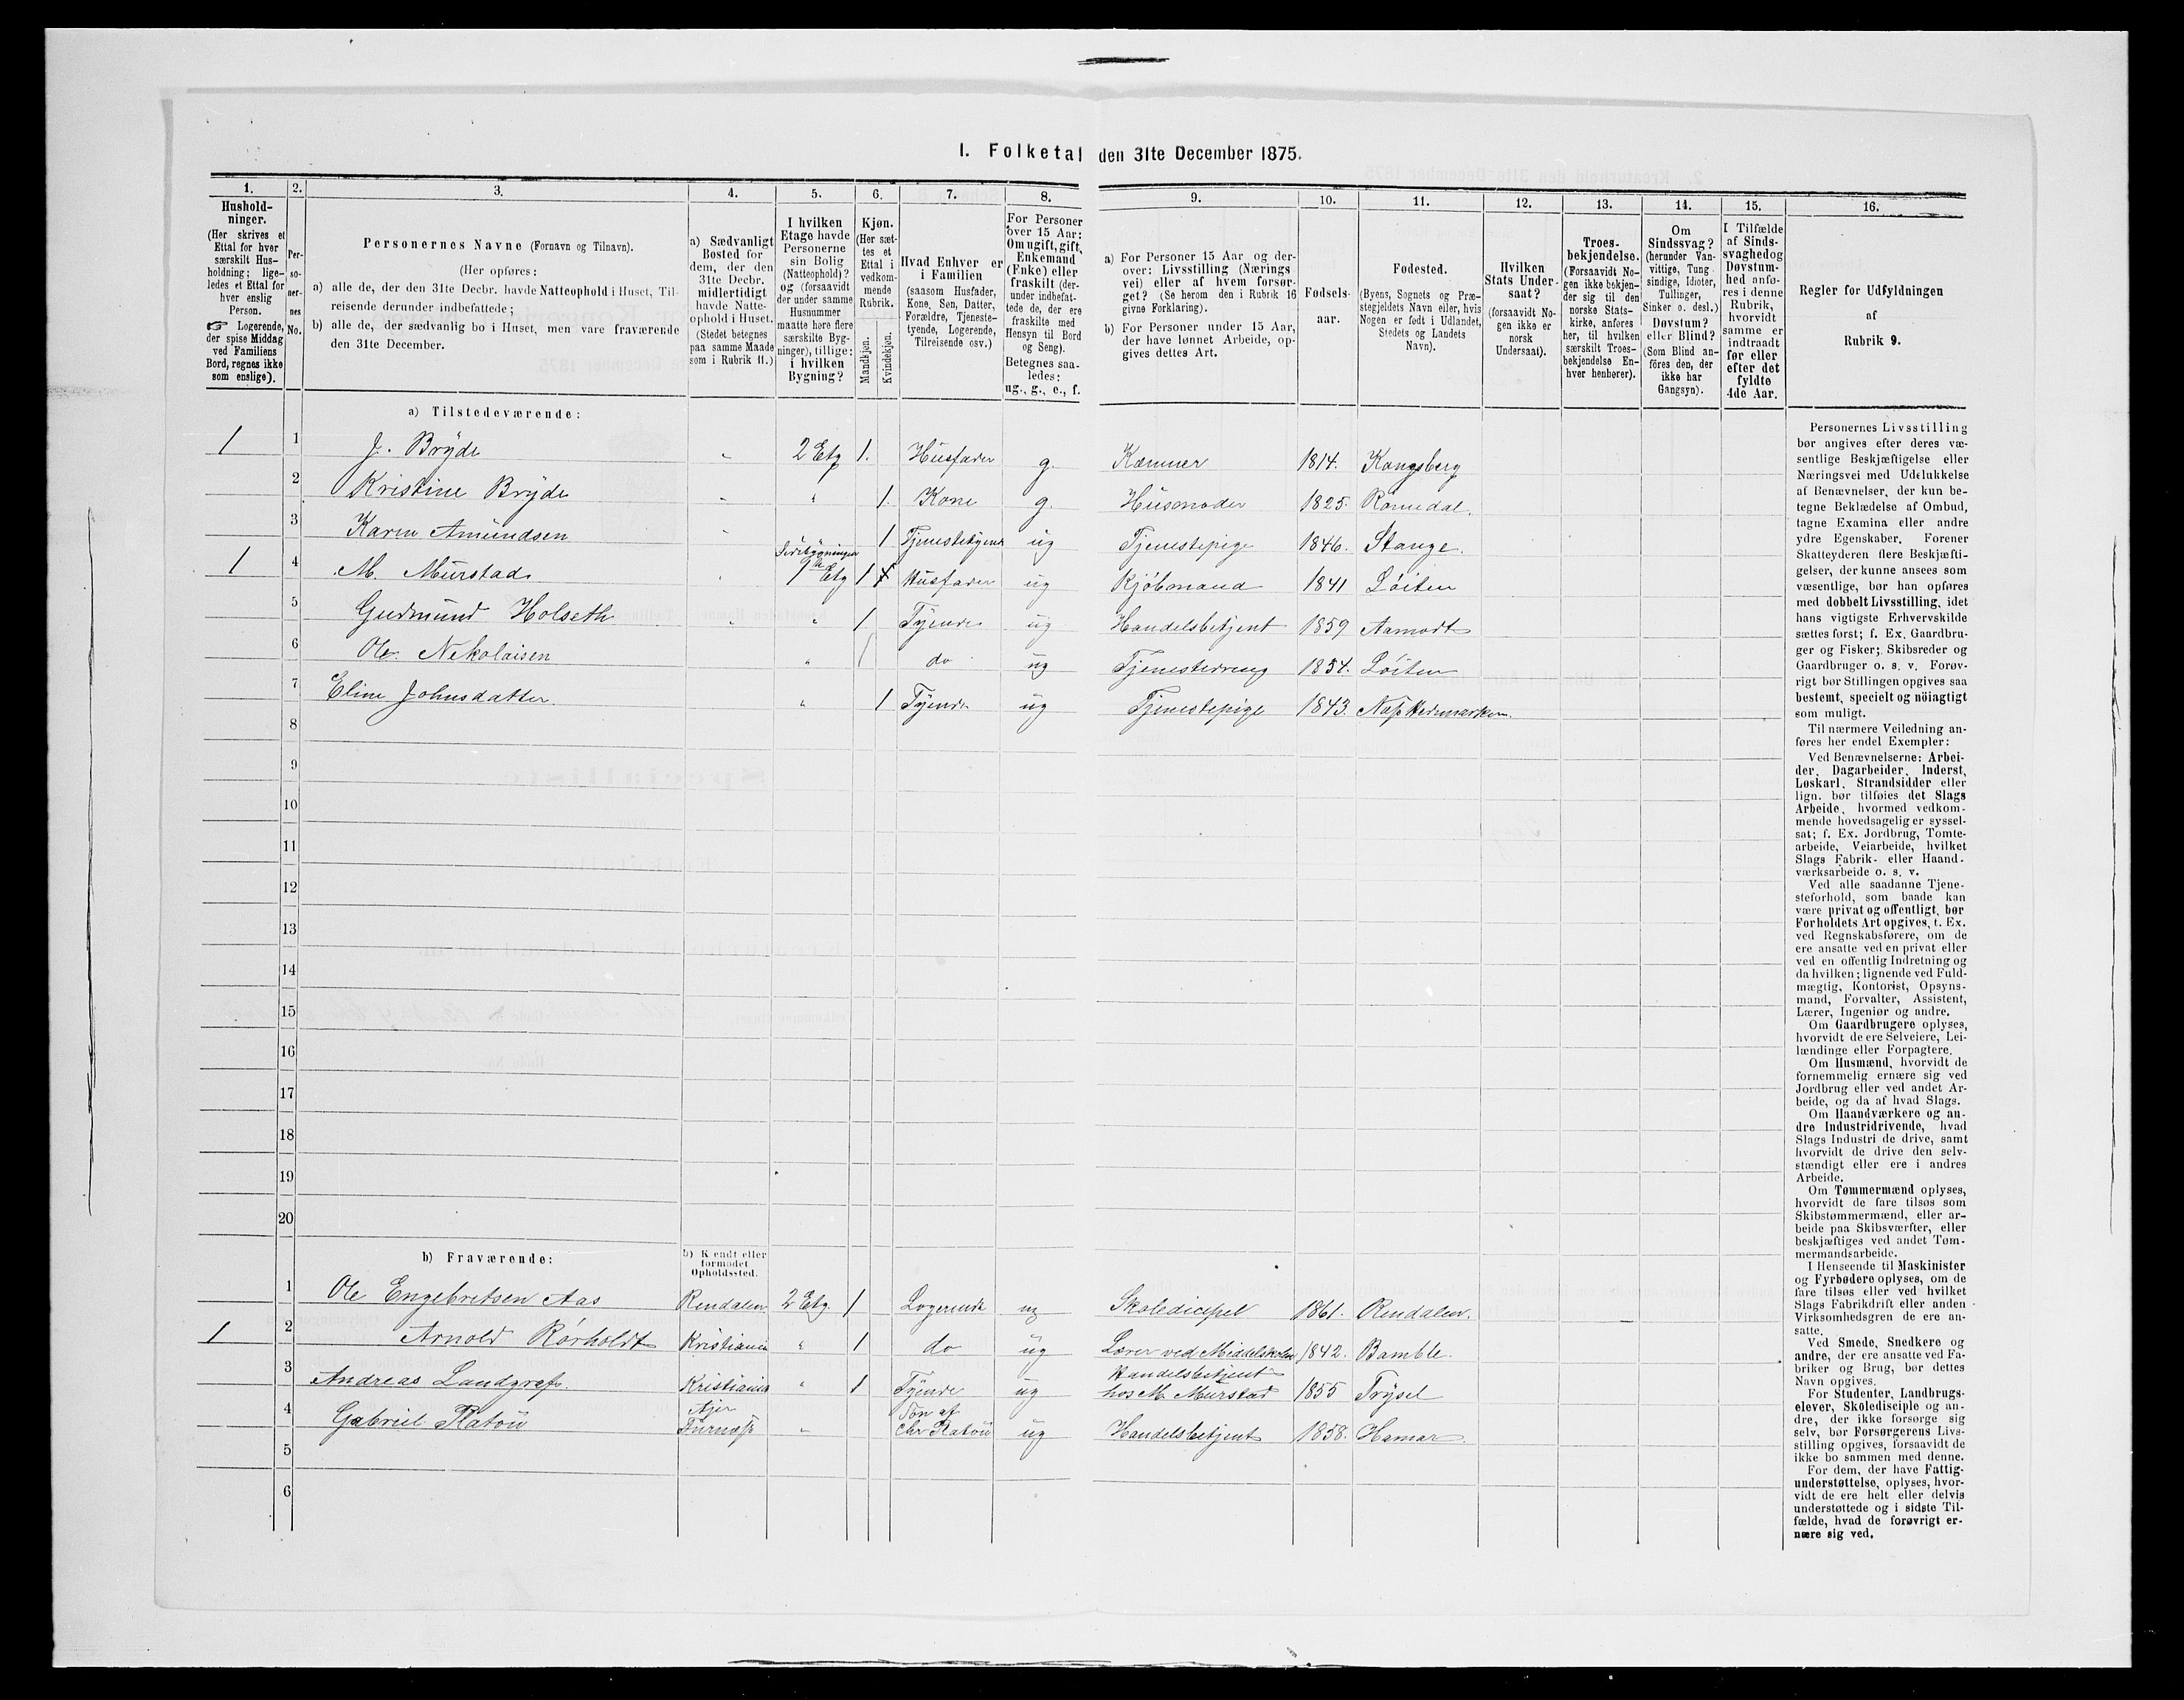 I. Folketal den 31te December 1875.
1.
2.
3.
4.
5.
6.
7.
8.
9.
10.
11.
12.
13.
14.
15.
16.
Hushold-
ninger.
(Her skrives et
Ettal for hver
særskilt Hus-
holdning; lige-
ledes et Ettal for
hver enslig
Person.
☞ Logerende,
der spise Middag
ved Familiens
Bord, regnes ikke
som enslige).
Per-
so-
ner-
nes
No.
Personernes Navne (Fornavn og Tilnavn).
(Her opføres:
a) alle de, der den 31te Decbr. havde Natteophold i Huset, Til-
reisende derunder indbefattede;
b) alle de, der sædvanlig bo i Huset, men vare fraværende
den 31te December.
a) Sædvanligt
Bosted for
dem, der den
31te Decbr.
midlertidigt
havde Natte-
ophold i Huset.
(Stedet betegnes
paa samme Maade
som i Rubrik 11.)
I hvilken
Etage havde
Personerne
sin Bolig
(Natteophold)?
og (forsaavidt
der under samme
Husnummer
maatte høre flere
særskilte Byg-
ninger), tillige:
i hvilken
Bygning?
Kjøn.
(Her sæt-
tes et
Ettal i
vedkom-
mende
Rubrik.
Mandkjøn.
Kvindekjøn.
Hvad Enhver er
i Familien
(saasom Husfader,
Kone, Søn, Datter,
Forældre, Tjeneste-
tyende, Logerende,
Tilreisende osv.)
For Personer
over 15 Aar:
Om ugift, gift,
Enkemand
(Enke) eller
fraskilt (der-
under indbefat-
tede de, der ere
fraskilte med
Hensyn til Bord
og Seng).
Betegnes saa-
ledes:
ug., g., e., f.
a) For Personer 15 Aar og der-
over: Livsstilling (Nærings
vei) eller af hvem forsør-
get? (Se herom den i Rubrik 16
givne Forklaring).
b) For Personer under 15 Aar,
der have lønnet Arbeide, op-
gives dettes Art.
Fødsels-
aar.
Fødested.
(Byens, Sognets og Præ-
stegjeldets Navn eller, hvis
Nogen er født i Udlandet,
Stedets og Landets
Navn).
Hvilken
Stats Under-
saat?
(forsaavidt No-
gen ikke er
norsk
Undersaat).
Troes-
bekjendelse.
(Forsaavidt No-
gen ikke bekjen-
der sig til den
norske Stats-
kirke, anføres
her, til hvilken
særskilt Troes-
bekjendelse En-
hver henhører).
Om
Sindssvag?
(herunder Van-
vittige, Tung
sindige, Idioter,
Tullinger,
Sinker o. desl.)
Døvstum?
eller Blind?
(Som Blind an-
føres den, der
ikke har
Gangsyn).
I Tilfælde
af Sinds-
svaghed og
Døvstum-
hed anfø-
res i denne
Rubrik,
hvorvidt
samme er
indtraadt
før eller
efter det
fyldte
4de Aar.
Regler for Udfyldningen
af
Rubrik 9.
a) Tilstedeværende:
1 1 J. Bryde 2 Etg 1. Husfader g. Kæmner 1814. Kongsberg
2 Kristine Bryde " 1. Kone g. Husmoder 1825. Romedal.
3 Karen Amundsen 1 Tjenestetyende ug Tjenestepige 1846. Stange.
Sidebygningen
1 4 M. Murstad 1ste Etg 1 Husfader ug Kjøbmand 1841 Løiten
5 Gudmund Holseth " 1 Tyende ug Handelsbetjent 1859 Aamodt
6 Ole Nekolaisen " 1 do ug Tjenestedreng 1854. Løiten
7 Eline Johnsdatter. " 1 Tyende ug Tjenestepige 1843. Næs Hedemarken.
8
9
10
11
12
13
14
15
16
17
18
19
20
b) Fraværende:
b) Kendt eller
formodet
Opholdssted.
1 Ole Engebretsen Aas Rendalen 2 Etg 1 Logerende ug Skoledicipel 1861. Rendalen.
1 2 Arnold Rørholdt Kristiania " 1 do ug Lærer ved Middelskolen 1842. Bamble.
3 Andreas Landgraf. Kristiania " 1 Tyende ug Handelsbetjent
hos M. Murstad 1855 Trysel
4 Gabriel Platou Furnæs " Søn af
Chr Platou ug Handelsbetjent 1858. Hamar.
5
6
Personernes Livsstilling
bør angives efter deres væ-
sentlige Beskjæftigelse eller
Næringsvei med Udelukkelse
af Benævnelser, der kun be-
tegne Beklædelse af Ombud,
tagne Examina eller andre
ydre Egenskaber. Forener
Skatteyderen flere Beskjæfti-
gelser, der kunne ansees som
væsentlige, bør han opføres
med dobbelt Livsstilling, idet
hans vigtigste Erhvervskilde
sættes først; f. Ex. Gaardbru-
ger og Fisker; Skibsreder og
Gaardbruger o. s. v. Forøv-
rigt bør Stillingen opgives saa
bestemt, specielt og nöiagtigt
som muligt.
Til nærmere Veiledning an-
føres her endel Exempler:
Ved Benævnelserne: Arbei-
der, Dagarbeider, Inderst,
Løskarl, Strandsidder eller
lign. bør tilføies det Slags
Arbeide, hvormed vedkom-
mende hovedsagelig er syssel-
sat; f. Ex. Jordbrug, Tomte-
arbeide, Veiarbeide, hvilket
Slags Fabrik- eller Haand-
værksarbeide o. s. v.
Ved alle saadanne Tjene-
steforhold, som baade kan
være privat og offentligt, bør
Forholdets Art opgives, t. Ex.
ved Regnskabsførere, om de
ere ansatte ved en privat eller
ved en offentlig Indretning og
da hvilken; lignende ved Fuld-
mægtig, Kontorist, Opsyns-
mand, Forvalter, Assistent,
Lærer, Ingeniør og andre.
Om Gaardbrugere oplyses,
hvorvidt de ere Selveiere, Lei-
lændinge eller Forpagtere.
Om Husmænd, hvorvidt de
fornemmelig ernære sig ved
Jordbrug eller ved andet Ar-
beide, og da af hvad Slags.
Om Haandværkere og an-
dre Industridrivende, hvad
Slags Industri de drive, samt
hvorvidt de drive den selv-
stændigt eller ere i andres
Arbeide.
Om Tømmermænd oplyses,
hvorvidt de fare tilsøs som
Skibstømmermænd, eller ar-
beide paa Skibsværfter, eller
beskjæftiges ved andet Tøm-
mermandsarbeide.
I Henseende til Maskinister
og Fyrbødere oplyses, om de
fare tilsøs eller ved hvilket
Slags Fabrikdrift eller anden
Virksomhedsgren de ere an-
satte.
Ved Smede, Snedkere og
andre, der ere ansatte ved Fa-
briker og Brug, bør dettes
Navn opgives.
For Studenter, Landbrugs-
elever, Skoledisciple og an-
dre, der ikke forsørge sig
selv, bør Forsørgerens Livs-
stilling opgives, forsaavidt de
ikke bo sammen med denne.
For dem, der have Fattig-
understøttelse, oplyses, hvor-
vidt de ere helt eller delvis
understøttede og i sidste Til-
fælde, hvad de forøvrigt er-
nære sig ved.